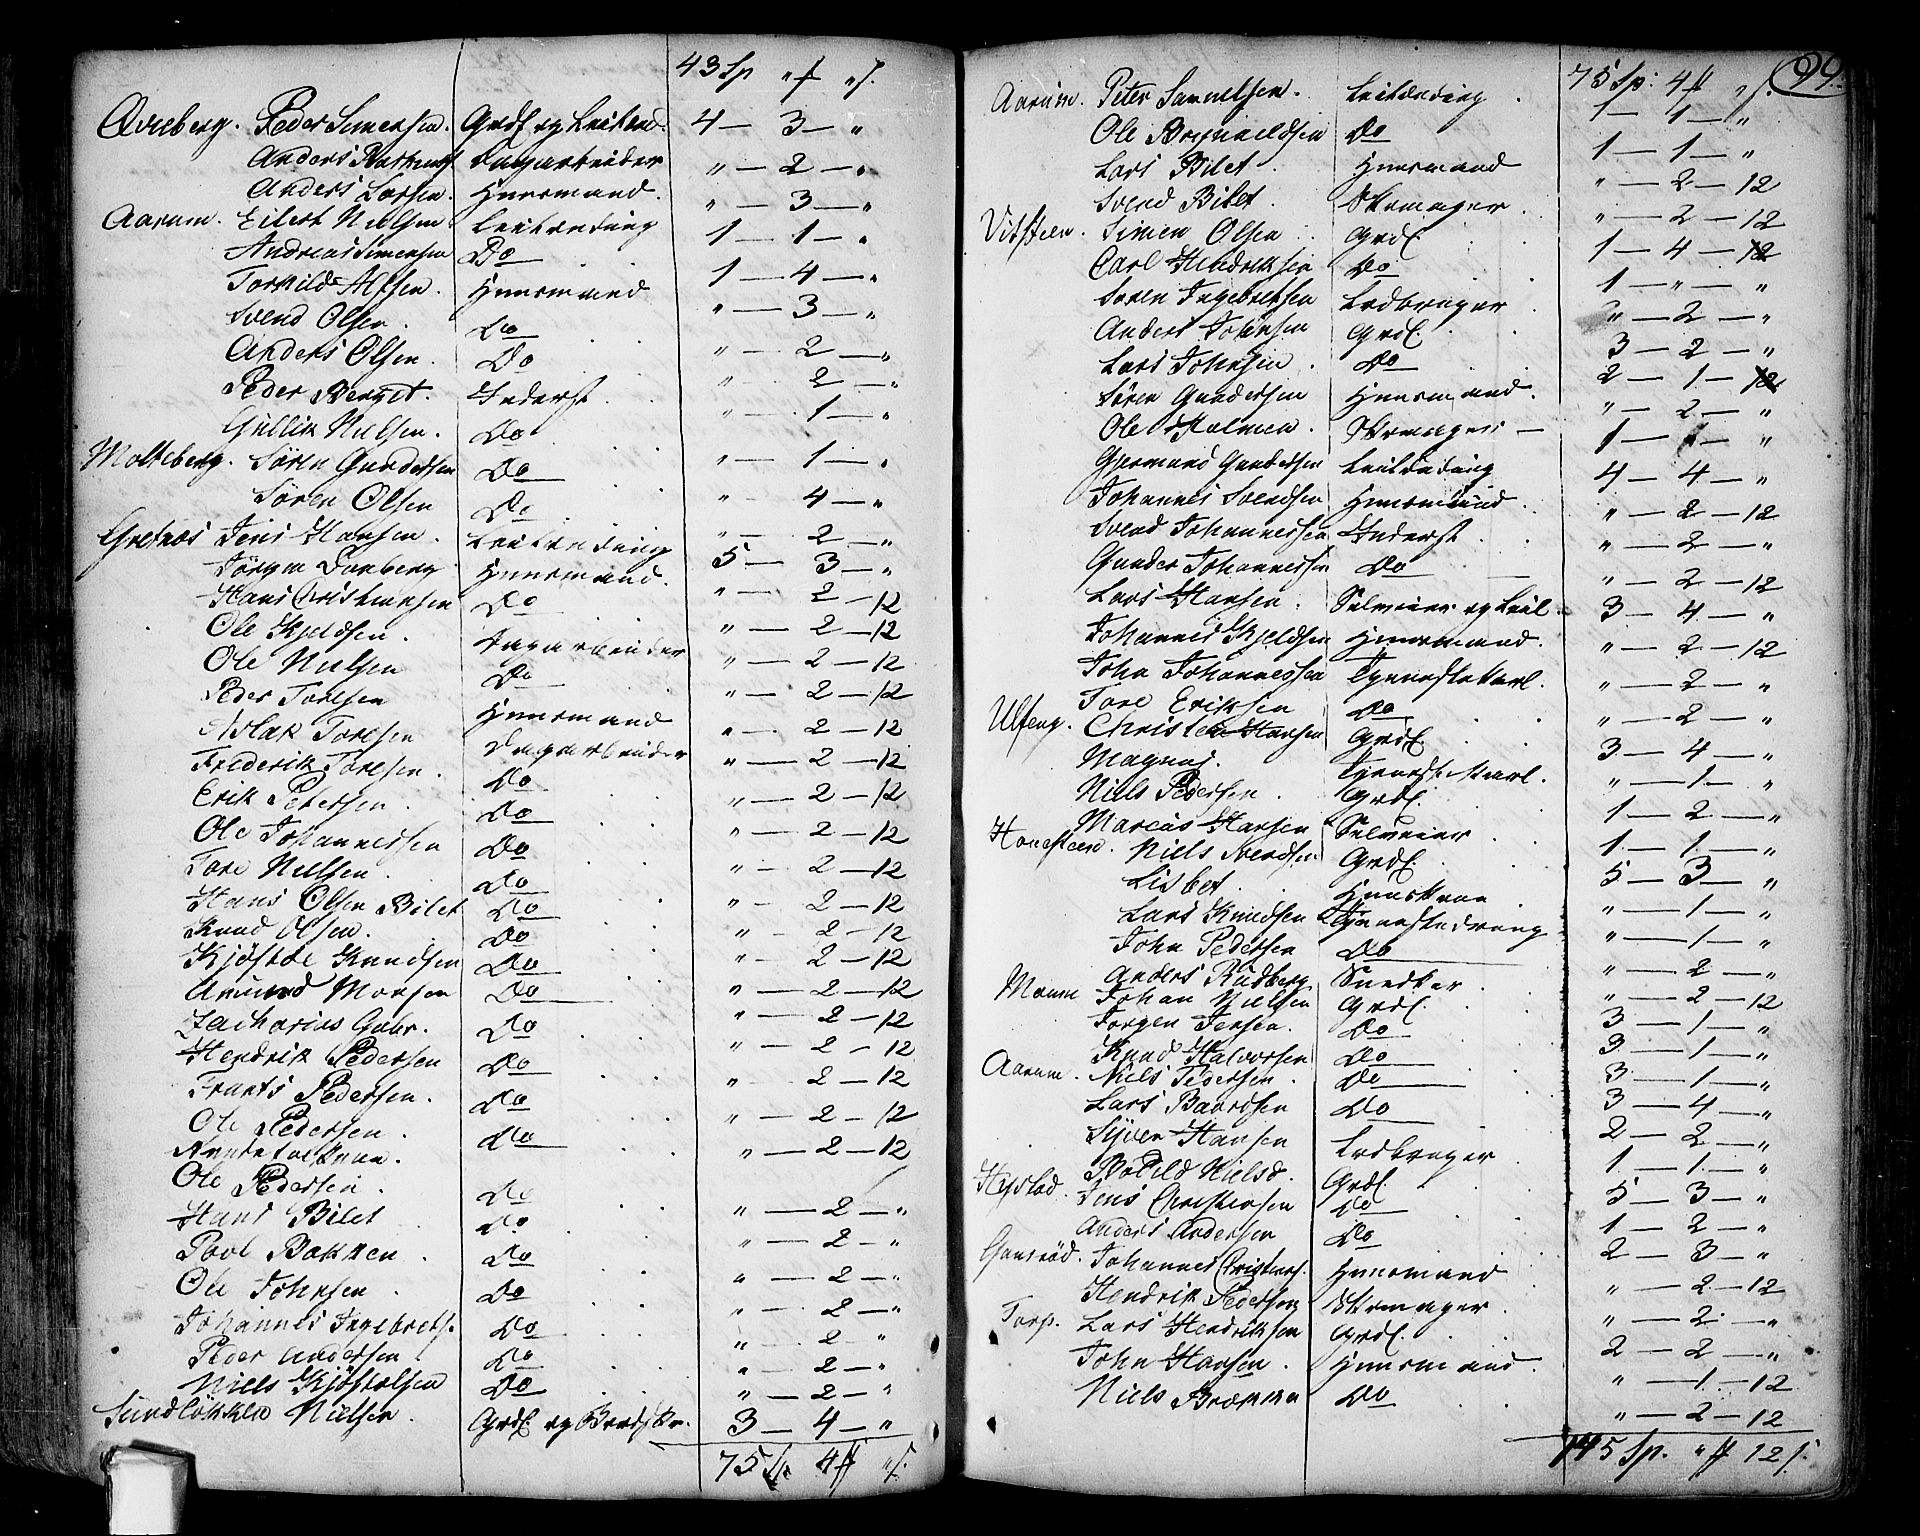 43 Sp „ f „ s.
Aareberg. Peder Simensen. Grdf og Leilænd. 4 — 3 — „
Anders Dagarbeider „ — 2 — „
Anders Larsen. Huusmand. „ — 3 — „
Aarum. Eilert Nielsen Leilænding 1 — 1 — „
Andreas Simensen Do 1 — 4 — „
Torkild Alfsen. Huusmand „ — 3 — „
Svend Olsen. Do „ — 2 — „
Anders Olsen. Do „ — 2 — „
Peder Bernt. Inderst. „ — 1 — „
Gullik Nielsen. Do „ — 1 — „
Molteberg. Søren Gundersen Do „ — 4 — „
Søren Olsen Do „ — 2 — „
Grefnæs Jens Hansen. Leilænding 5 — 3 — „
Jørgen Huusmand. „ — 2 — 12
Hans Christiansen Do „ — 2 — 12
Ole Kjeldsen. Dagarbeider „ — 2 — 12
Ole Nielsen Do „ — 2 — 12
Peder Toresen Huusmand „ — 2 — 12
Aslak Toresen Dagarbeider „ — 2 — 12
Frederik Toresen. Do „ — 2 — 12
Erik Petersen. Do „ — 2 — 12
Ole Johannessen Do „ — 2 — 12
Tore Nielsen. Do „ — 2 — 12
Hans Olsen Bilet Do „ — 2 — 12
Knud Olsen. Do „ — 2 — 12
Kjøstol Knudsen Do „ — 2 — 12
Amund Monsen Do „ — 2 — 12
Zacharias Gabr. Do „ — 2 — 12
Hendrik Pedersen Do „ — 2 — 12
Frants Pedersen. Do „ — 2 — 12
Ole Pedersen. Do „ — 2 — 12
Ole Pedersen. Do „ — 2 — „
Hans Bilet Do „ — 2 — „
Povl Bakken. Do „ — 2 — „
Ole Johnsen. Do „ — 2 — „
Johannes Ingebrets. Do „ — 2 „
Peder Andersen Do „ — 2 — „
Niels Kjøstolsen Do „ — 2 — „
Sundløkken Nielsen. Grdf. og 3 — 4 — „
75 Sp 4 f „ s.
99.
75 Sp: 4 f „ s.
Aarum. Peter Samuelsen. Leilænding. 1 — 4 — „
Ole Brynnildsen Do 1 — 1 — „
Lars Bilet. Huusmand „ — 2 — 12
Svend Bilet. Skomager. „ — 2 — 12
Vitsteen. Simen Olsen Grdf. 1 — 4 — 12
Carl Hendriksen Do 1 — „ — „
Soren Ingebretsen Lodbruger „ — 2 — „
Anders Johnsen Grdf. 3 — 2 — „
Lars Johnsen. Do 2 — 1 — 12
Søren Gundersen Huusmand. „ — 2 — „
Ole Holmen. Skomager — 1 — — „
Gjermund Gundersen Leilænding 4 — 4 — „
Johannes Svendsen Huusmand „ — 2 — 12
Svend Johannessen Inderst. „ — 2 — „
Gunder Johannessen Do „ — 2 — 12
Lars Hansen. Selveier og Leil. 3 — 4 — „
Johannes Kjeldsen Huusmand. „ — 2 — 12
John Johannessen Tjenestekarl. „ — 2 — „
Tore Eriksen Do „ — 2 — „
Ulfeng. Christen Hansen Grdf. 3 — 4 — „
Magnus. Tjenestekarl. „ — 1 — „
Niels Pedersen. Grdf. 1 — 2 — „
Marcus Hansen Selveier. 1 — 1 — „
Haugsteen. Niels Svendsen Grdf. 5 — 3 — „
Lisbet. Huuskone. „ — 1 — „
Lars Knudsen Tjenestedreng „ — 1 — „
John Pedersen Do „ — 2 — „
Anders Rudberg Snedker. „ — 2 — 12
Moum Johan Nielsen Grdf. 3 — 1 — „
Jorgen Jensen. Do 3 — 1 — „
Knud Halvorsen Do 3 — 1 — „
Aarum. Niels Pedersen. Do 3 — 4 — „
Lars Baardsen Do 2 — 2 — „
Syver Hansen Lodbruger. 1 — 1 — „
Bothild Nielsd. Grdf. 5 — 3 — „
Jens Christensen Do 1 — 2 — „
Anders Andersen Do 2 — 3 — „
Gansrød. Johannes Christians. Huusmand „ — 2 — 12
Hendrik Pedersen Skomager. „ — 2 — „
Torp. Lars Hendriksen Grdf. 2 — 2 — „
John Hansen. Huusmand. „ — 1 — 12
Niels Brækka Do „ — 2 — 12
145 Sp. „ f 12 s.